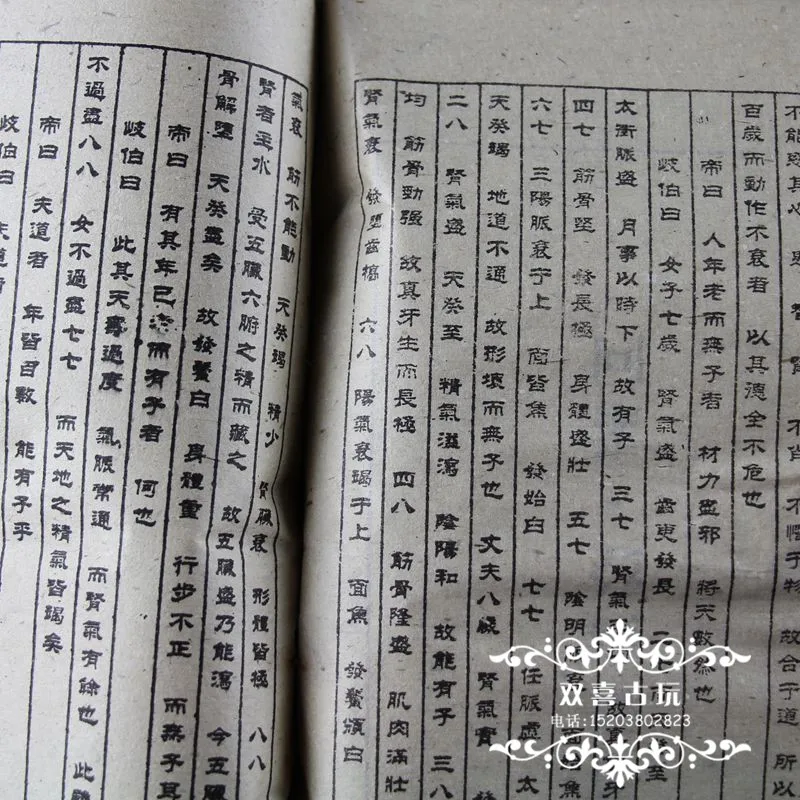 不能惑其心 愚 智 賢 不肖 不懼于物 故合于道 所以
百歲而動作不衰者 以其德全不危也
帝曰 人年老而無子者 材力盡邪 將天數然也
岐伯曰 女子七歲 腎氣盛 齒更發長
太衝脈盛 月事以時下 故有子 三七 腎氣
四七 筋骨堅 發長極 身體盛壯 五七 陰明
六七 三陽脈衰于上 面皆焦 發始白 七七 任脈虛 太
天癸竭 地道不通 故形壞而無子也 丈夫八歲 腎氣實
二八 腎氣盛 天癸至 精氣溢瀉 陰陽和 故能有子 三八
均 筋骨勁强 故真牙生而長極 四八 筋骨隆盛 肌肉滿壯
腎氣衰 發墮齒槁 六八 陽氣衰竭于上 面焦 發鬢頒白
氣衰 筋不能動 天癸竭 精少 腎臟衰 形體皆極 八八
腎者主水 受五臟六腑之精而藏之 故五臟盛乃能瀉 今五臟
骨解墮 天癸盡矣 故發鬢白 身體重 行步不正 而無子耳
帝曰 有其年已老而有子者 何也
岐伯曰 此其天壽過度 氣脈常通 而腎氣有餘也 此雖
不過盡八八 女不過盡七七 而天地之精氣皆竭矣
帝曰 夫道者 年皆百數 能有子乎
岐伯曰 夫道者
双喜古玩
电话:15203802823